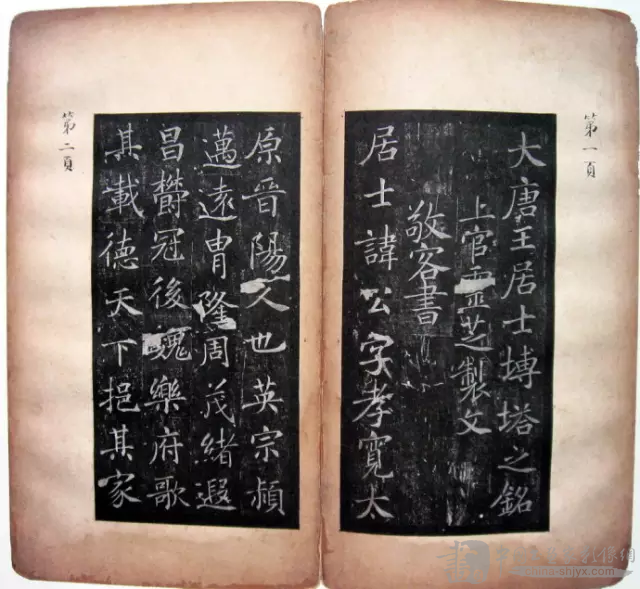 第一頁
大唐王居士塼塔之銘
上官靈芝製文
敬客書
居士諱公字孝寬太
第二頁
原晉陽人也英宗頴
邁遠胄隆周茂緒遐
昌欝冠後魏樂府歌
其載德天下挹其家
china-shjyx.com